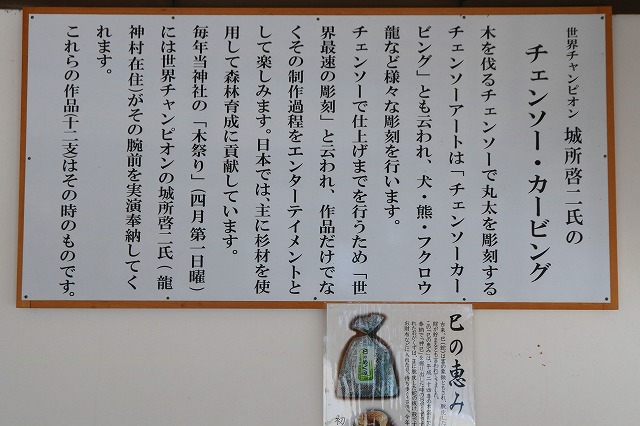 世界チャンピオン 城所啓二氏の
チェンソー・カービング
木を伐るチェンソーで丸太を彫刻する
チェンソーアートは「チェンソーカー
ビング」とも云われ、犬・熊・フクロウ
龍など様々な彫刻を行います。
チェンソーで仕上げまでを行うため「世
界最速の彫刻」と云われ、作品だけでな
くその制作過程をエンターテイメントと
して楽しみます。日本では、主に杉材を使
用して森林育成に貢献しています。
毎年当神社の「木祭り」(四月第一日曜)
には世界チャンピオンの城所啓二氏(龍
神村在住)がその腕前を実演奉納してく
れます。
これらの作品(十二支)はその時のものです。
巳の恵み
初